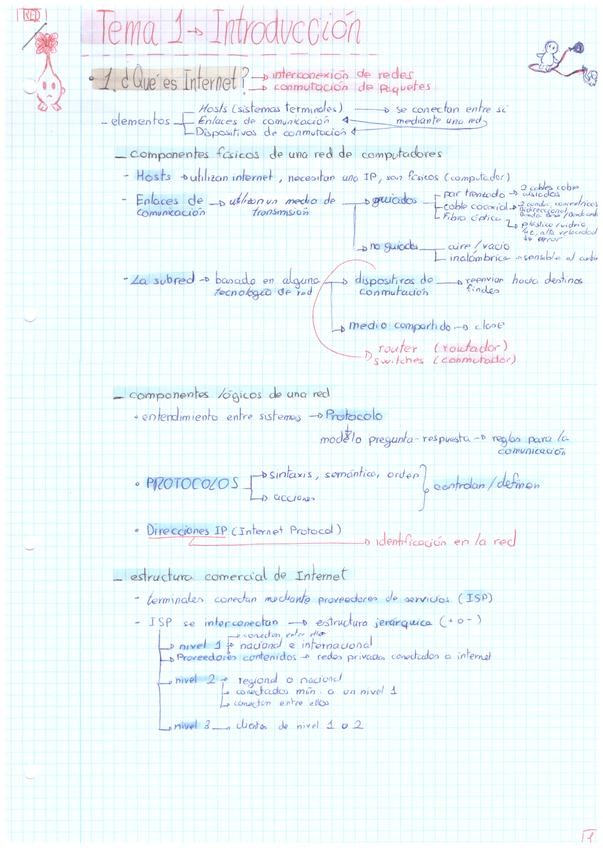 RED
Tema 1 → Introducción
• 1. ¿Qué es Internet? → interconexión de redes
→ conmutación de paquetes
– elementos
Hosts (sistemas terminales) → se conectan entre sí
Enlaces de comunicación mediante una red
Dispositivos de conmutación
– componentes físicos de una red de computadores
- Hosts → utilizan internet, necesitan una IP, son físicos (computador)
- Enlaces de comunicación → utilizan un medio de transmisión
→ guiados
par trenzado → 2 cables cobre aislados
cable coaxial → 2 conduc. concéntricos
Fibra óptica
→ plástico vidrio
luz, alta velocidad
↓ error
→ no guiados
aire / vacío
inalámbrica
- La subred → basado en alguna tecnología de red
→ dispositivos de conmutación → reenviar hacia destinos
→ medio compartido →
router (routador)
switches (conmutador)
– componentes lógicos de una red
• entendimiento entre sistemas → Protocolo
modelo pregunta-respuesta → reglas para la comunicación
• PROTOCOLOS
→ sintaxis, semántica, orden
→ acciones
controlan / definen
• Direcciones IP (Internet Protocol)
→ identificación en la red
– estructura comercial de Internet
- terminales conectan mediante proveedores de servicios (ISP)
- ISP se interconectan → estructura jerárquica (+ o -)
→ conectan entre ellos
→ nivel 1 → nacional e internacional
→ Proveedores contenidos → redes privadas conectadas a internet
→ nivel 2 → regional o nacional
→ conectados mín. a un nivel 1
→ conectan entre ellos
→ nivel 3 — clientes de nivel 1 o 2
1